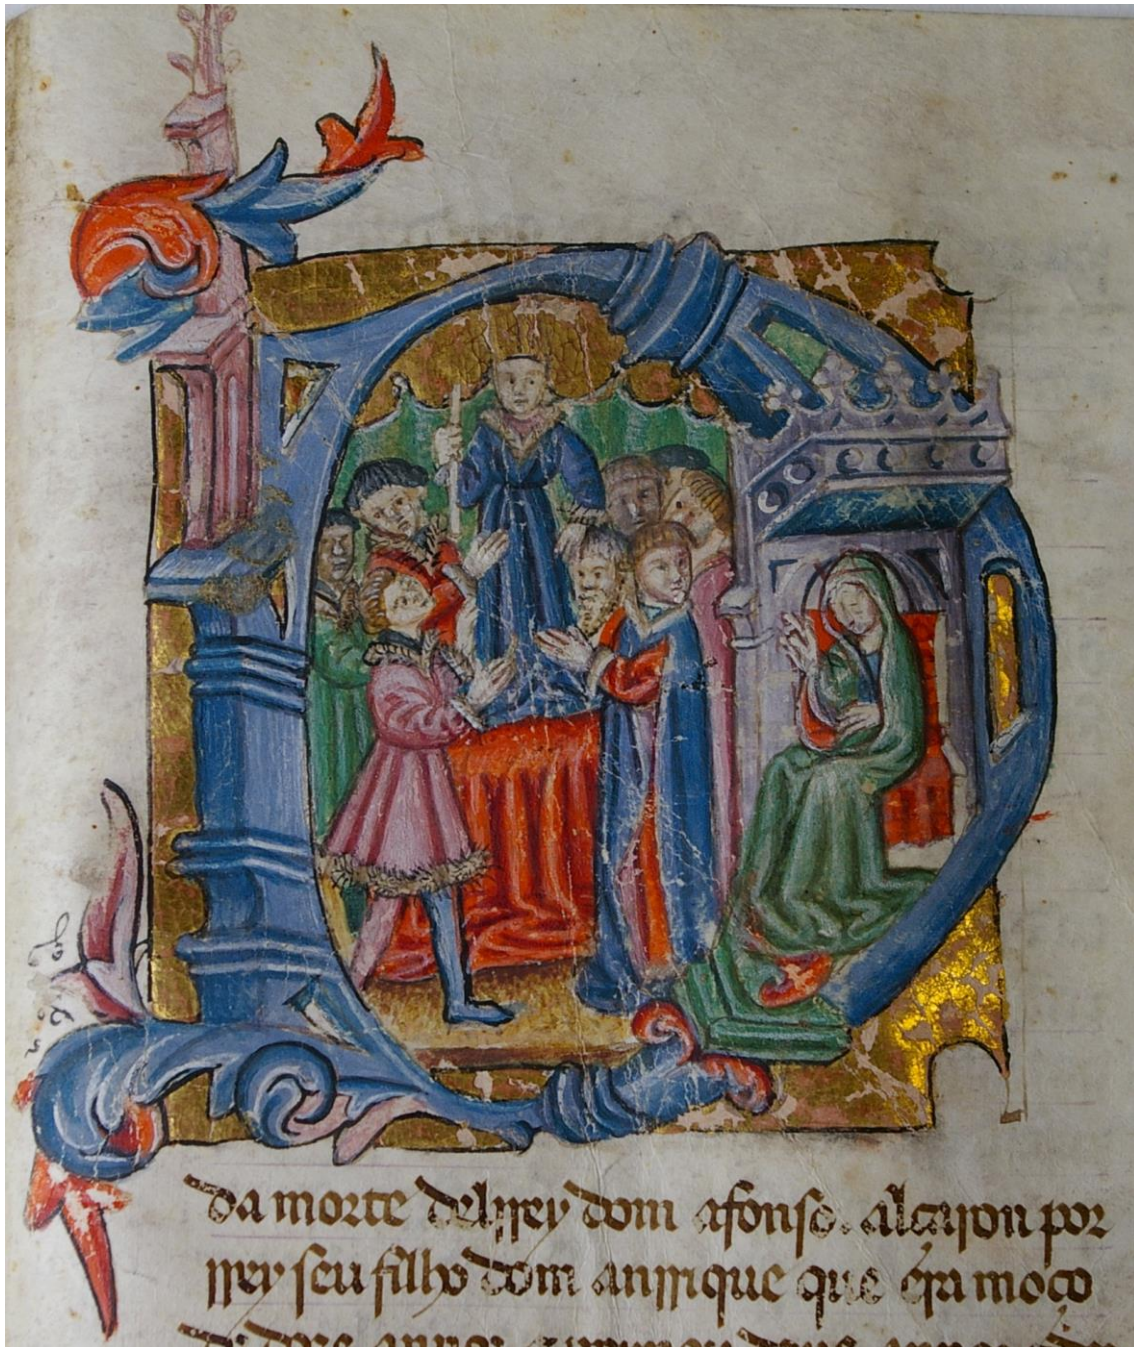 da morte delrrey dom afonso. alçaron por
rrey seu filho dom anrrique que era moço
de doze annos